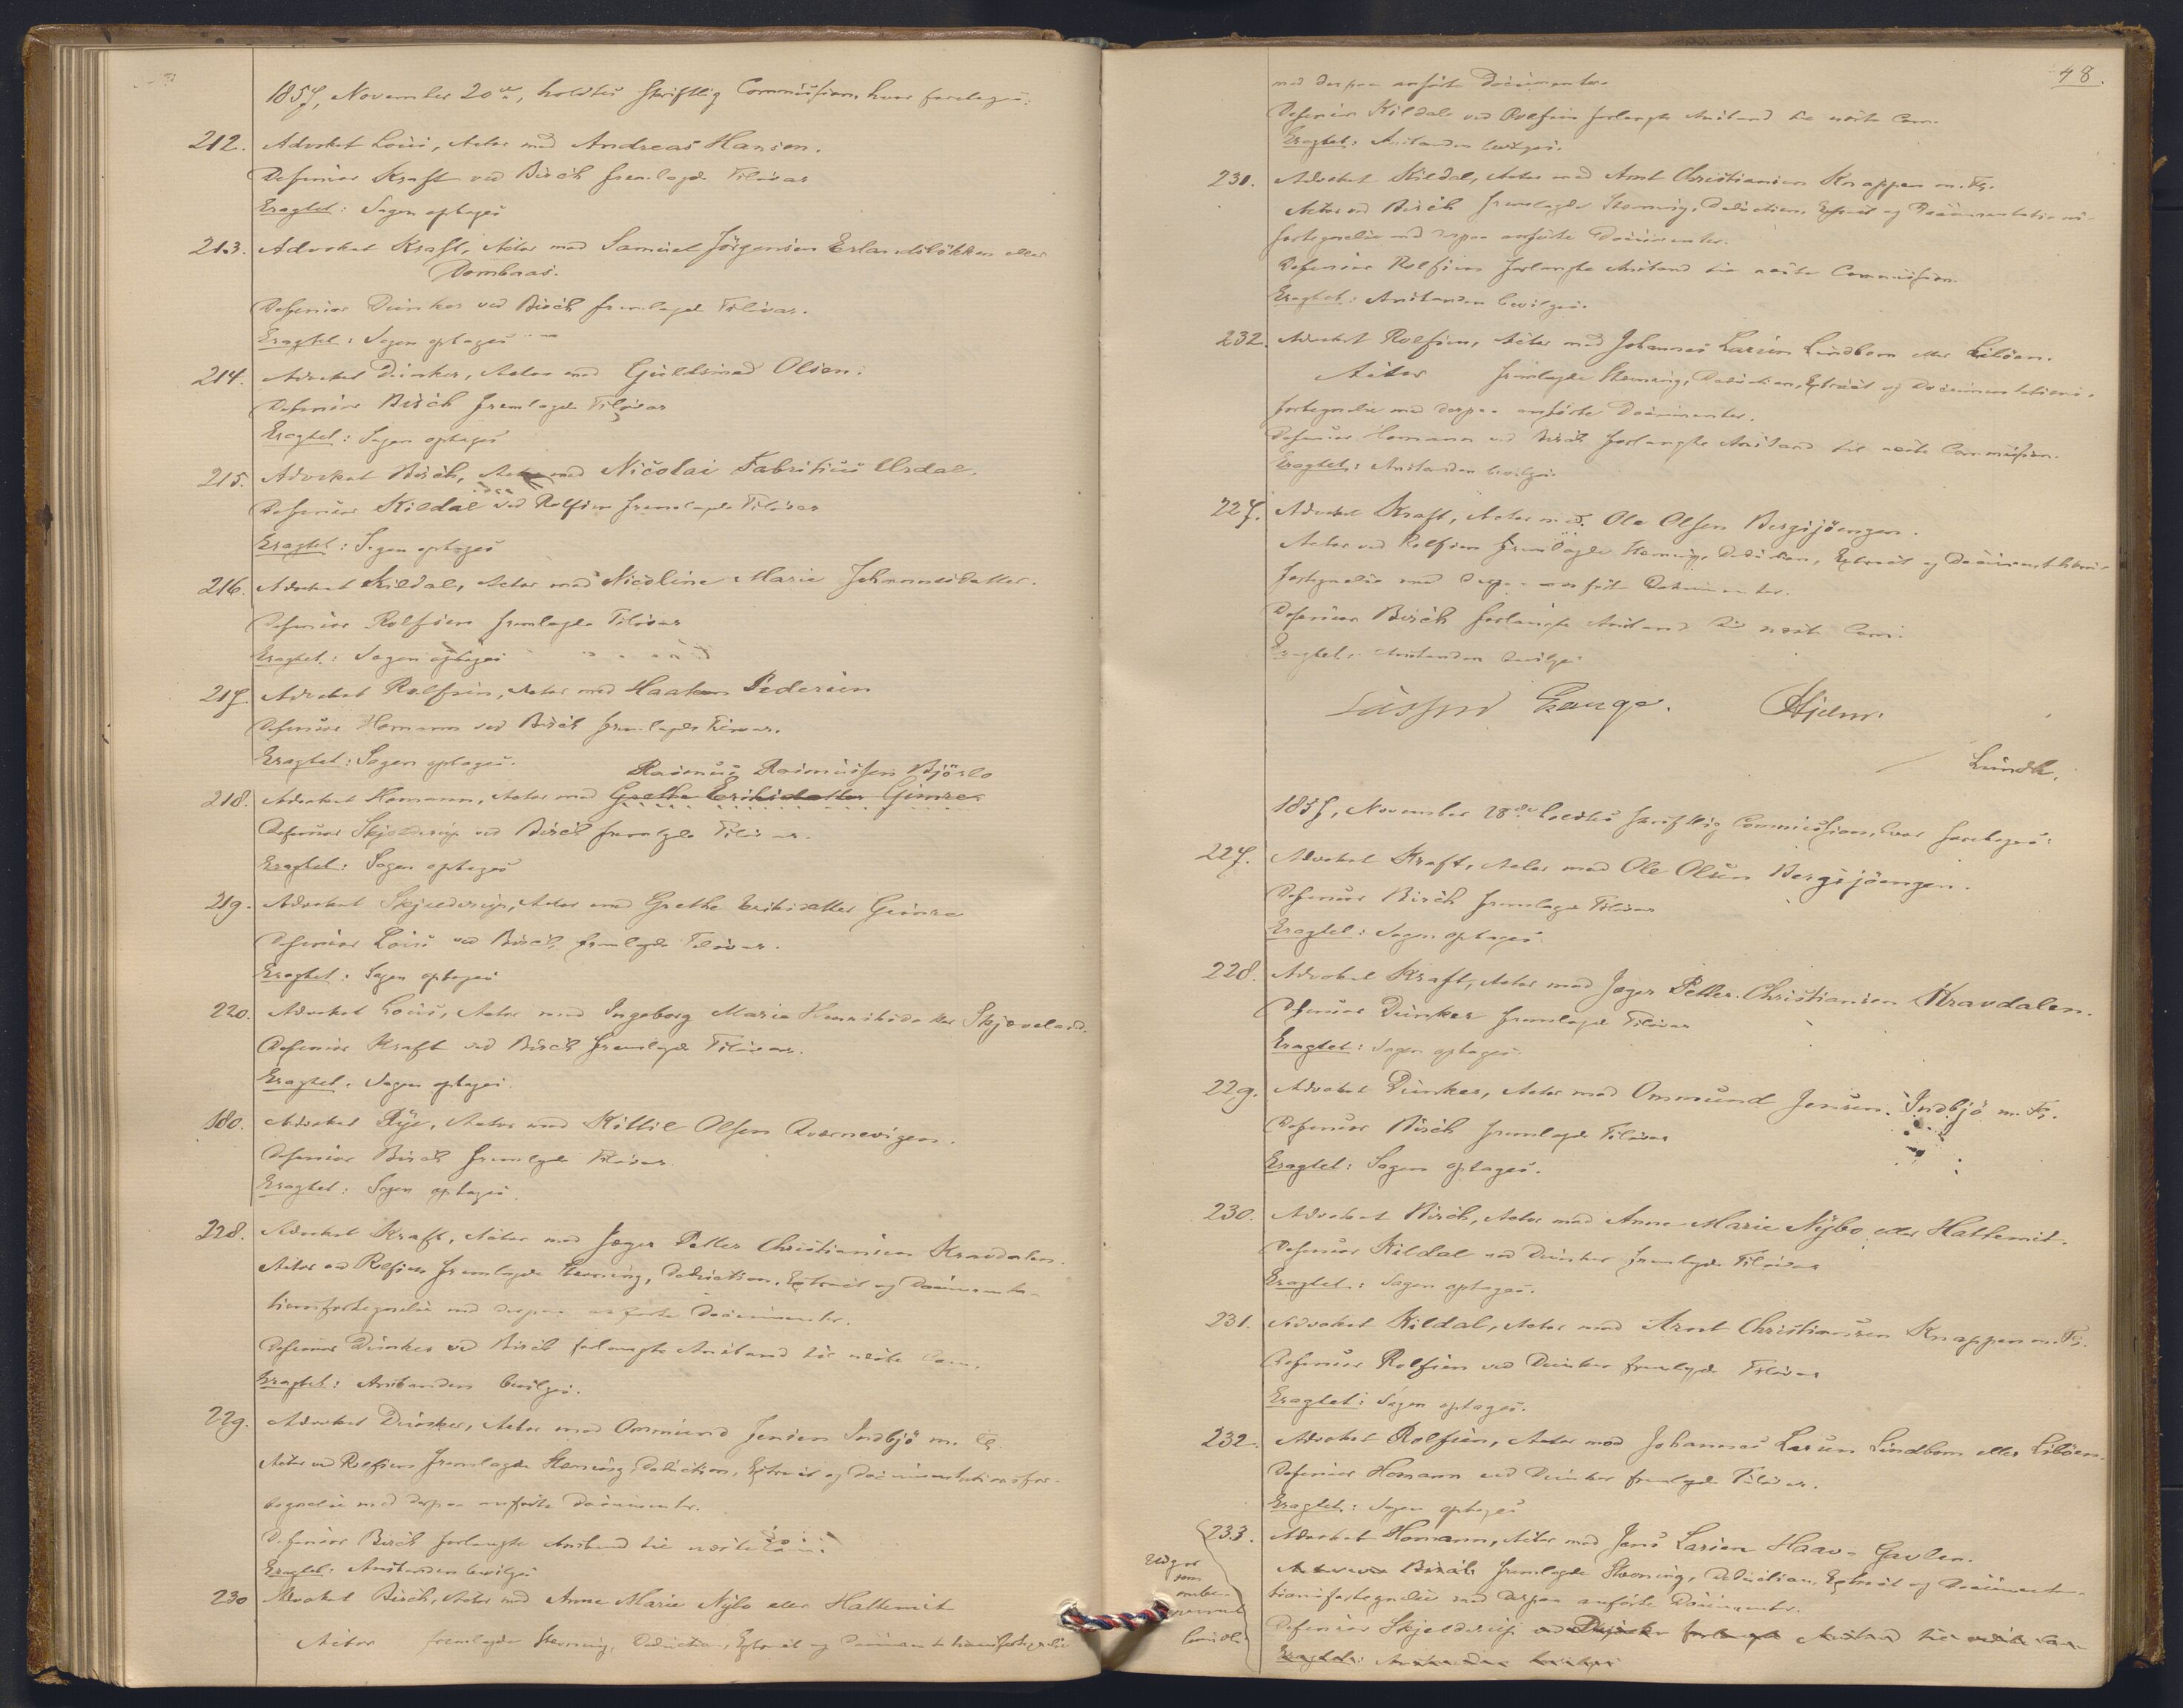 1857, November 20de, holdtes skriftlig Commission, hvor foretoges:
212. Advokat Louis, Actor mod Andreas Hansen.
Defensor Kraft ved Birch fremlagde Tilsvar
Eragtet: Sagen optages
213. Advokat Kraft, Actor mod Samuel Jörgensen Erlandslökken eller
Dombaas.
Defensor Dunker ved Birch fremlagde Tilsvar.
Eragtet: Sagen optages
214. Advokat Dunker, Actor mod Guldsmed Olsen.
Defensor Birch fremlagde Tilsvar
Eragtet: Sagen optages
215. Advokat Birch, Actor mod Nicolai Fabritius Urdal.
Defensor Kildal ved Rolfsen fremlagde Tilsvar
Eragtet: Sagen optages
216. Advokat Kildal, Actor mod Nicoline Marie Johannesdatter.
Defensor Rolfsen fremlagde Tilsvar
Eragtet: Sagen optages
217. Advokat Rolfsen, Actor mod Haaken Pedersen
Defensor Homann ved Birch fremlagde Tilsvar.
Eragtet: Sagen optages.
Rasmus Rasmussen Bjørlo
218. Advokat Homann, Actor mod Grethe Eriksdatter Gimre
Defensor Skjelderup ved Birch fremlagde Tilsvar.
Eragtet: Sagen optages
219. Advokat Skjelderup, Actor mod Grethe Eriksdatter Gimre
Defensor Louis ved Birch fremlagde Tilsvar.
Eragtet: Sagen optages
220. Advokat Louis, Actor mod Ingeborg Marie Henriksdatter Skjæveland.
Defensor Kraft ved Birch fremlagde Tilsvar.
Eragtet: Sagen optages.
180. Advokat Rye, Actor mod Kittil Olsen Qvernevigen.
Defensor Birch fremlagde Tilsvar.
Eragtet: Sagen optages.
228. Advokat Kraft, Actor mod Jæger Petter Christiansen Kravdalen.
Actor ved Rolfsen fremlagde Stevning, Deduction, Extract og Documenta-
tionsfortegnelse med derpaa anførte Documenter.
Defensor Dunker ved Birch forlangte Anstand til næste Com.
Eragtet: Anstanden bevilges.
229. Advokat Dunker, Actor mod Ommund Jensen Indbjö m. Fl.
Actor ved Rolfsen fremlagde Stevning, Deduction, Extract og Documentationsfor-
tegnelse med derpaa anførte Documenter.
Defensor Birch forlangte Anstand til næste Com.
Eragtet: Anstanden bevilges
230 Advokat Birch, Actor mod Anne Marie Nybo eller Hattemit
Actor fremlagde Stevning, Deduction, Extract og Documentationsfortegnelse
48.
med derpaa anførte Documenter.
Defensor Kildal ved Rolfsen forlangte Anstand til næste Com.
Eragtet: Anstanden bevilges.
231. Advokat Kildal, Actor mod Arnt Christiansen Knappen m. Fl.
Actor ved Birch fremlagde Stevning, Deduction, Extract og Documentations-
fortegnelse med derpaa anførte Documenter.
Defensor Rolfsen forlangte Anstand til næste Commission.
Eragtet: Anstanden bevilges.
232. Advokat Rolfsen, Actor mod Johannes Larsen Lindbom eller Liböen.
Actor fremlagde Stevning, Deduction, Extract og Documentations-
fortegnelse med derpaa anførte Documenter.
Defensor Homann ved Birch forlangte Anstand til næste Commission.
Eragtet: Anstanden bevilges.
227. Advokat Kraft, Actor mod Ole Olsen Bergsjöengen.
Actor ved Rolfsen fremlagde Stevning, Deduction, Extract og Documentations-
fortegnelse med derpaa anførte Dokumenter.
Defensor Birch forlangte Anstand til næste Com.
Eragtet: Anstanden bevilges
Lasson Lange. Hjelm.
Lundh.
1857, November 28de holdtes skriftlig Commission, hvor foretoges:
227. Advokat Kraft, Actor mod Ole Olsen Bergsjöengen.
Defensor Birch fremlagde Tilsvar
Eragtet: Sagen optages.
228. Advokat Kraft, Actor mod Jæger Petter Christiansen Kravdalen.
Defensor Dunker fremlagde Tilsvar
Eragtet: Sagen optages.
229. Advokat Dunker, Actor mod Ommund Jensen Indbjö m. Fl.
Defensor Birch fremlagde Tilsvar
Eragtet: Sagen optages.
230. Advokat Birch, Actor mod Anne Marie Nybo eller Hattemit.
Defensor Kildal ved Dunker fremlagde Tilsvar
Eragtet: Sagen optages.
231. Advokat Kildal, Actor mod Arnt Christiansen Knappen m. Fl.
Defensor Rolfsen ved Dunker fremlagde Tilsvar
Eragtet: Sagen optages.
232. Advokat Rolfsen, Actor mod Johannes Larsen Lindbom eller Liböen.
Defensor Homann ved Dunker fremlagde Tilsvar.
Eragtet: Sagen optages
233. Advokat Homann, Actor mod Jens Larsen Haave-Gavlen.
Actor ved Birch fremlagde Stevning, Deduction, Extract og Documenta-
tionsfortegnelse med derpaa anførte Documenter.
Defensor Skjelderup ved Dunker forlangte Anstand til næste Com
Eragtet: Anstanden bevilges
Udgaar
som